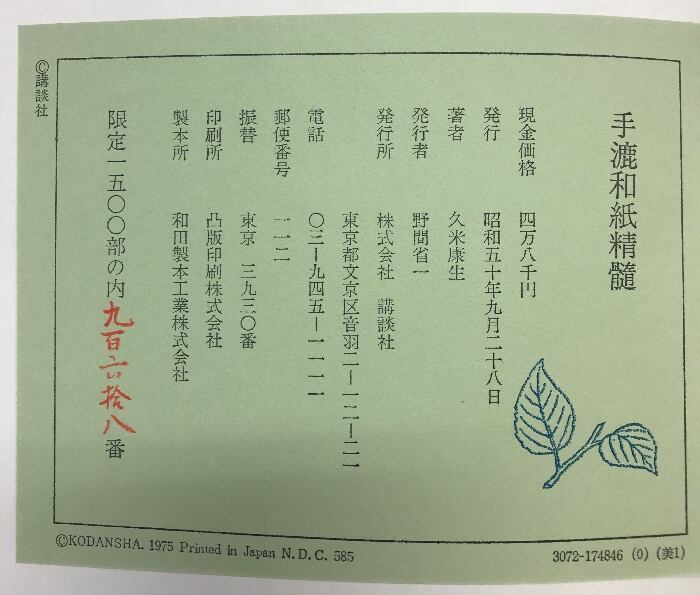 手漉和紙精髄
現金価格 四万八千円
発行 昭和五十年九月二十八日
著者 久米康生
発行者 野間省一
発行所 株式会社 講談社
東京都文京区音羽二ー一二ー二一
電話 〇三ー九四五ー一一一一
郵便番号 一一二
振替 東京 三九三〇番
印刷所 凸版印刷株式会社
製本所 和田製本工業株式会社
限定一五〇〇部の内九百六拾八番
©講談社
©KODANSHA. 1975 Printed in Japan N.D.C. 585
3072-174846 (0) (美1)